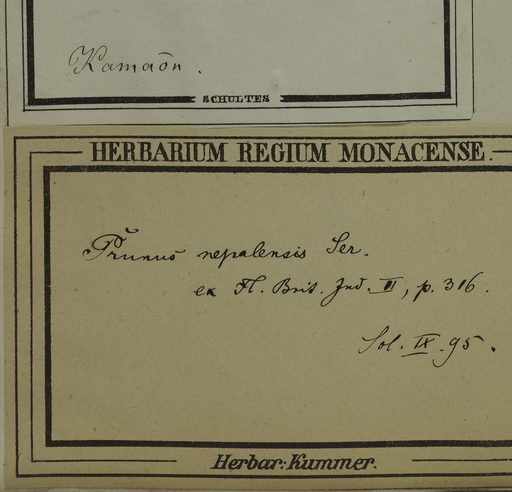 Kamaōn.
SCHULTES
HERBARIUM REGIUM MONACENSE.
Prunus nepalensis Ser.
ex Fl. Brit. Ind. II, p. 316.
Sol. IX. 95.
Herbar: Kummer.